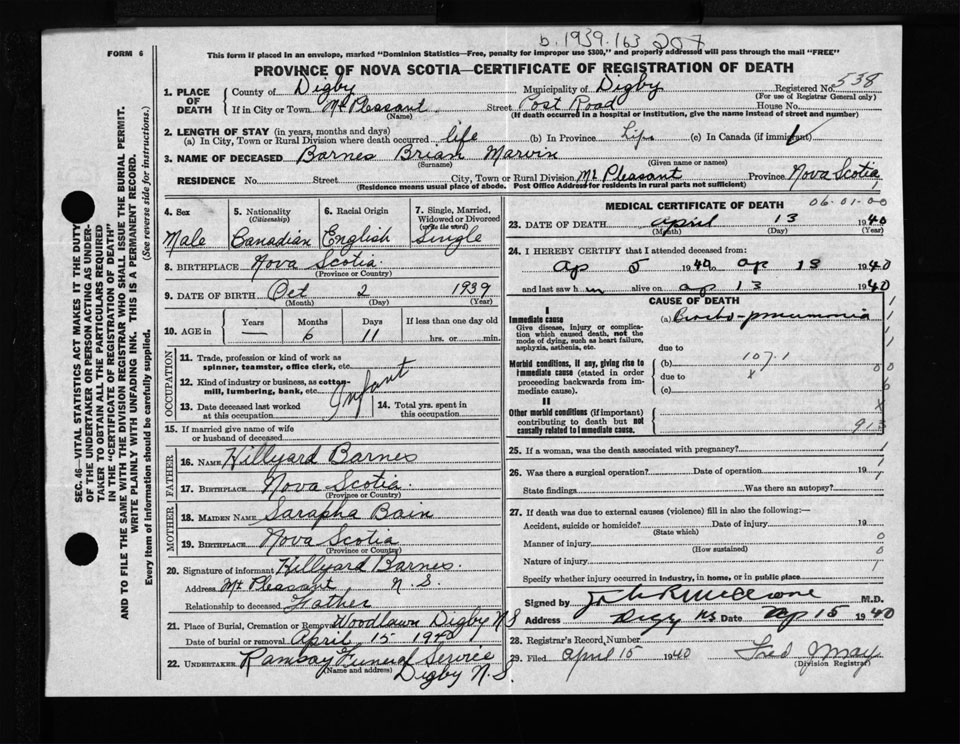 b. 1939. 163 207
FORM 6
This form if placed in an envelope, marked "Dominion Statistics—Free, penalty for improper use $300," and properly addressed will pass through the mail "FREE"
PROVINCE OF NOVA SCOTIA—CERTIFICATE OF REGISTRATION OF DEATH
SEC. 46—VITAL STATISTICS ACT MAKES IT THE DUTY
OF THE UNDERTAKER OR PERSON ACTING AS UNDER-
TAKER TO OBTAIN ALL THE PARTICULARS REQUIRED
IN THE "CERTIFICATE OF REGISTRATION OF DEATH"
AND TO FILE THE SAME WITH THE DIVISION REGISTRAR WHO SHALL ISSUE THE BURIAL PERMIT.
WRITE PLAINLY WITH UNFADING INK. THIS IS A PERMANENT RECORD.
Every item of information should be carefully supplied. (See reverse side for instructions.)
1. PLACE OF DEATH
County of Digby Municipality of Digby Registered No. 538
(For use of Registrar General only)
If in City or Town Mt Pleasant Street Post Road House No.
(Name) (If death occurred in a hospital or institution, give the name instead of street and number)
2. LENGTH OF STAY (in years, months and days)
(a) In City, Town or Rural Division where death occurred life (b) In Province Life (c) In Canada (if immigrant)
3. NAME OF DECEASED Barnes Brian Marvin
(Surname) (Given name or names)
RESIDENCE No. Street City, Town or Rural Division Mt Pleasant Province Nova Scotia
(Residence means usual place of abode. Post Office Address for residents in rural parts not sufficient)
4. Sex
Male
5. Nationality
(Citizenship)
Canadian
6. Racial Origin
English
7. Single, Married, Widowed or Divorced
(write the word)
Single
8. BIRTHPLACE Nova Scotia
(Province or Country)
9. DATE OF BIRTH Oct 2 1939
(Month) (Day) (Year)
10. AGE in Years Months Days If less than one day old
— 6 11 hrs. or min.
OCCUPATION
11. Trade, profession or kind of work as
spinner, teamster, office clerk, etc.
12. Kind of industry or business, as cotton-
mill, lumbering, bank, etc.
Infant
13. Date deceased last worked
at this occupation
14. Total yrs. spent in
this occupation
15. If married give name of wife
or husband of deceased
FATHER
16. NAME Hillyard Barnes
17. BIRTHPLACE Nova Scotia
(Province or Country)
MOTHER
18. MAIDEN NAME Sarapha Bain
19. BIRTHPLACE Nova Scotia
(Province or Country)
20. Signature of informant Hillyard Barnes.
Address Mt Pleasant N.S.
Relationship to deceased Father
21. Place of Burial, Cremation or Removal Woodlawn Digby N S
Date of burial or removal April 15 1940
22. UNDERTAKER Ramsay Funeral Service
(Name and address) Digby N.S.
MEDICAL CERTIFICATE OF DEATH 06-01-00
23. DATE OF DEATH April 13 1940
(Month) (Day) (Year)
24. I HEREBY CERTIFY that I attended deceased from:
Ap 5 1940 to ap 13 1940
and last saw him alive on ap 13 1940
CAUSE OF DEATH
I
Immediate cause
Give disease, injury or complica-
tion which caused death, not the
mode of dying, such as heart failure,
asphyxia, asthenia, etc.
(a) Broncho-pneumonia
due to
Morbid conditions, if any, giving rise to
immediate cause (stated in order
proceeding backwards from im-
mediate cause).
(b) 107.1
due to
(c)
II
Other morbid conditions (if important)
contributing to death but not
causally related to immediate cause.
25. If a woman, was the death associated with pregnancy?
26. Was there a surgical operation? Date of operation 19
State findings Was there an autopsy?
27. If death was due to external causes (violence) fill in also the following:—
Accident, suicide or homicide? Date of injury 19
(State which)
Manner of injury
(How sustained)
Nature of injury
Specify whether injury occurred in industry, in home, or in public place
Signed by M.D.
Address Digby NS Date Ap 15 1940
28. Registrar's Record Number
29. Filed April 15 1940 Fred May
(Division Registrar)